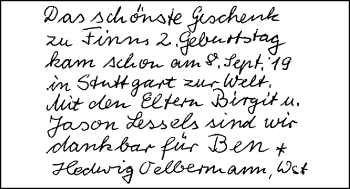 Das schönste Geschenk
zu Finns 2. Geburtstag
kam schon am 8. Sept. '19
in Stuttgart zur Welt.
Mit den Eltern Birgit u.
Jason Lessels sind wir
dankbar für Ben *
Hedwig Oelbermann, Wst